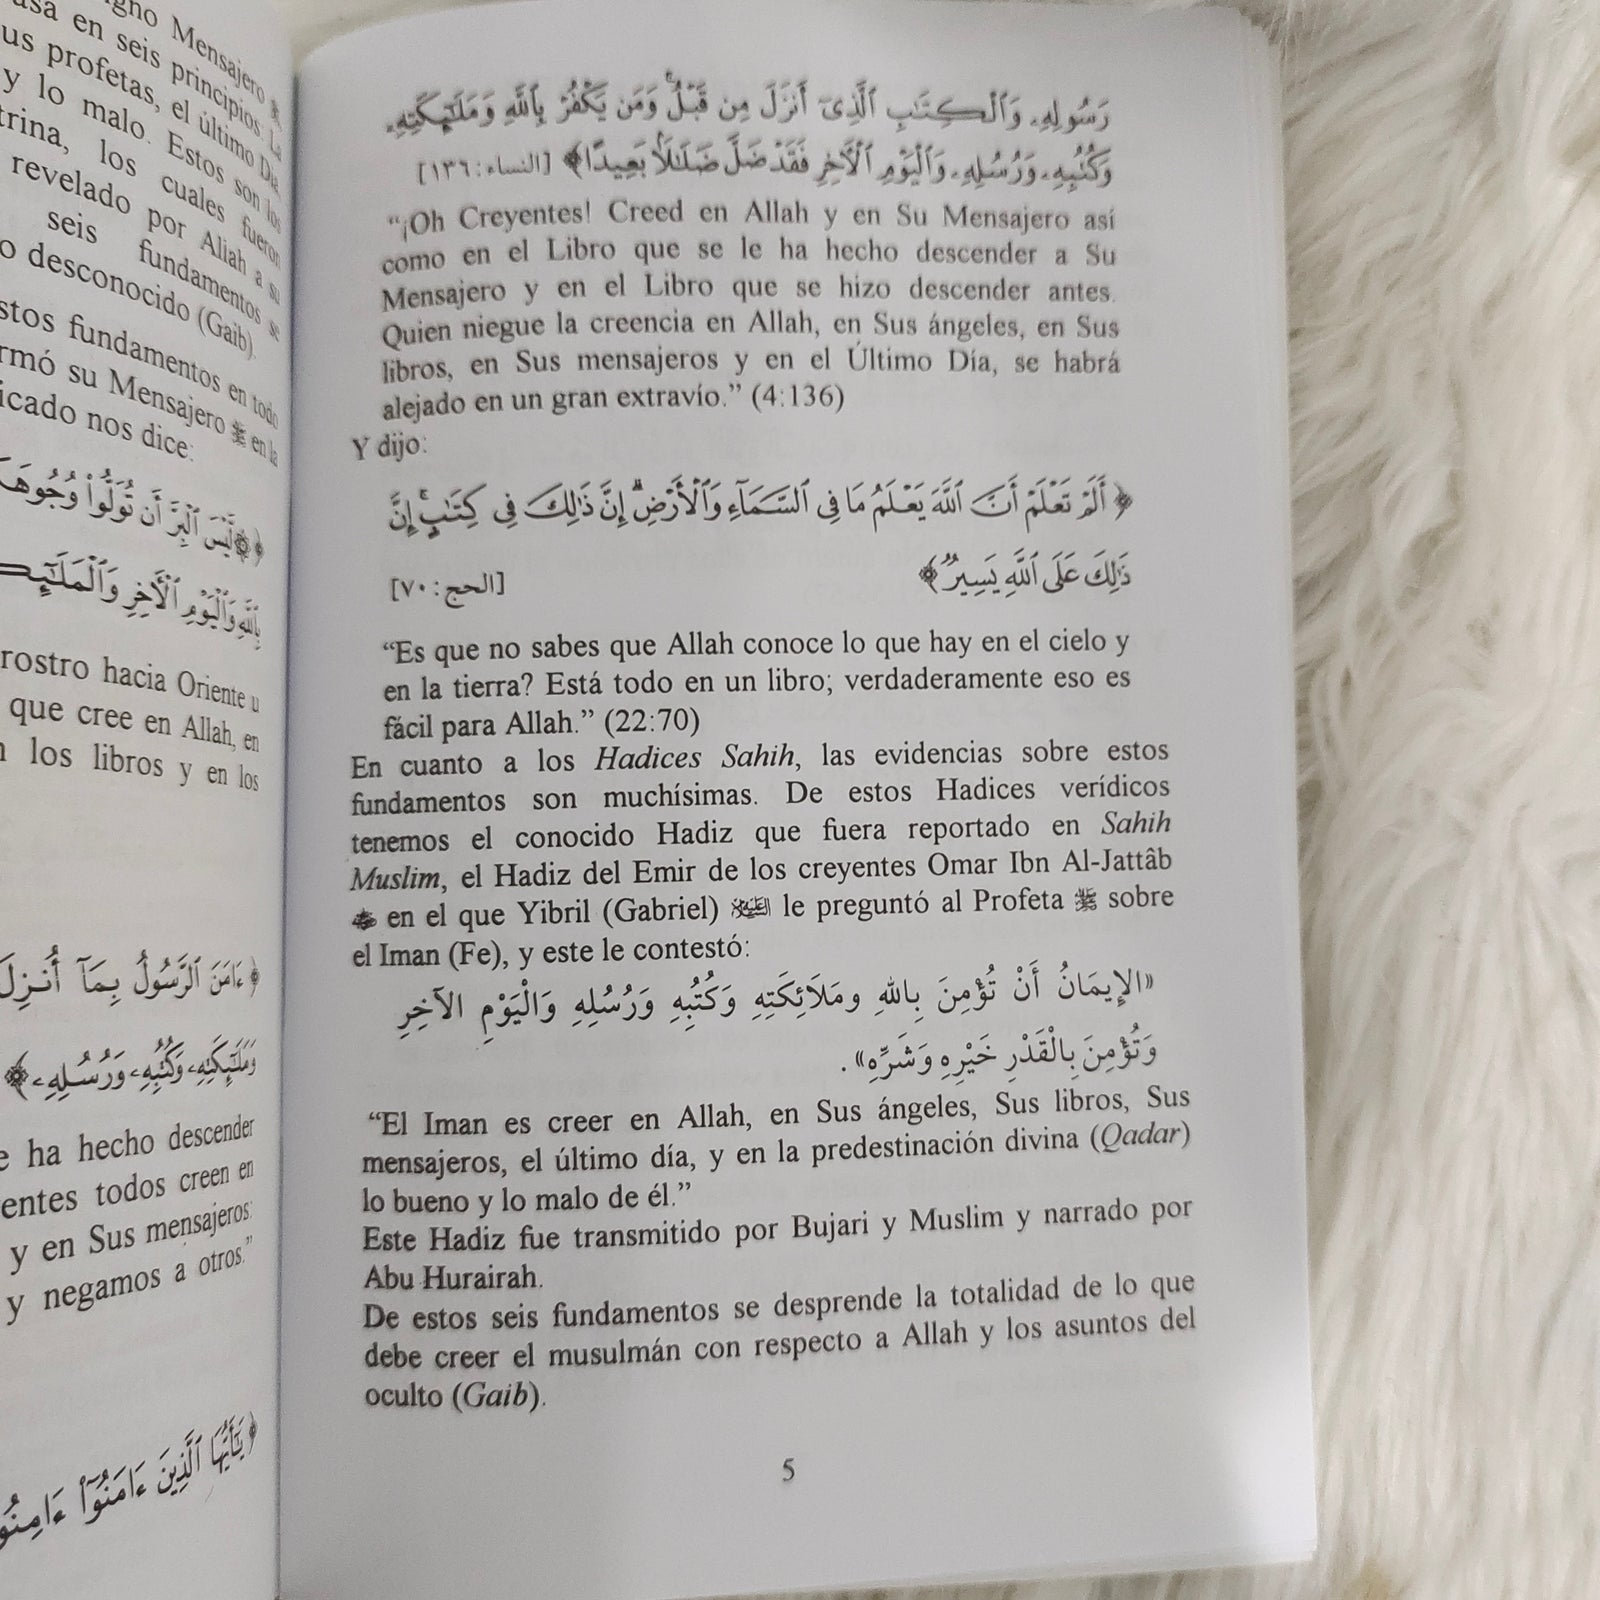 igno Mensajero ﷺ
asa en seis principios. La
us profetas, el último Día,
y lo malo. Estos son los
trina, los cuales fueron
revelado por Allah a su
seis fundamentos se
o desconocido (Gaib).
stos fundamentos en todo
rmó su Mensajero ﷺ en la
icado nos dice:
﴿۞لَّيْسَ ٱلْبِرَّ أَن تُوَلُّوا۟ وُجُوهَ
بِٱللَّهِ وَٱلْيَوْمِ ٱلْأَخِرِ وَٱلْمَلَـٰٓئِكَ
rostro hacia Oriente u
que cree en Allah, en
n los libros y en los
﴿ءَامَنَ ٱلرَّسُولُ بِمَآ أُنزِلَ
وَمَلَـٰٓئِكَتِهِۦ وَكُتُبِهِۦ وَرُسُلِهِۦ﴾
e ha hecho descender
entes todos creen en
y en Sus mensajeros:
y negamos a otros.”
﴿يَـٰٓأَيُّهَا ٱلَّذِينَ ءَامَنُوٓا۟ ءَامِنُو
رَسُولِهِۦ وَٱلْكِتَـٰبِ ٱلَّذِىٓ أَنزَلَ مِن قَبْلُ ۚ وَمَن يَكْفُرْ بِٱللَّهِ وَمَلَـٰٓئِكَتِهِۦ
وَكُتُبِهِۦ وَرُسُلِهِۦ وَٱلْيَوْمِ ٱلْأَخِرِ فَقَدْ ضَلَّ ضَلَـٰلًۢا بَعِيدًا﴾ [النساء: ١٣٦]
“¡Oh Creyentes! Creed en Allah y en Su Mensajero así
como en el Libro que se le ha hecho descender a Su
Mensajero y en el Libro que se hizo descender antes.
Quien niegue la creencia en Allah, en Sus ángeles, en Sus
libros, en Sus mensajeros y en el Último Día, se habrá
alejado en un gran extravío.” (4:136)
Y dijo:
﴿أَلَمْ تَعْلَمْ أَنَّ ٱللَّهَ يَعْلَمُ مَا فِى ٱلسَّمَآءِ وَٱلْأَرْضِ ۗ إِنَّ ذَٰلِكَ فِى كِتَـٰبٍ ۚ إِنَّ
ذَٰلِكَ عَلَى ٱللَّهِ يَسِيرٌ﴾ [الحج: ٧٠]
“Es que no sabes que Allah conoce lo que hay en el cielo y
en la tierra? Está todo en un libro; verdaderamente eso es
fácil para Allah.” (22:70)
En cuanto a los Hadices Sahih, las evidencias sobre estos
fundamentos son muchísimas. De estos Hadices verídicos
tenemos el conocido Hadiz que fuera reportado en Sahih
Muslim, el Hadiz del Emir de los creyentes Omar Ibn Al-Jattâb
en el que Yibril (Gabriel) le preguntó al Profeta ﷺ sobre
el Iman (Fe), y este le contestó:
«الإِيمَانُ أَنْ تُؤْمِنَ بِاللهِ ومَلَائِكَتِهِ وَكُتُبِهِ وَرُسُلِهِ وَالْيَوْمِ الآخِرِ
وَتُؤْمِنَ بِالْقَدْرِ خَيْرِهِ وَشَرِّهِ».
“El Iman es creer en Allah, en Sus ángeles, Sus libros, Sus
mensajeros, el último día, y en la predestinación divina (Qadar)
lo bueno y lo malo de él.”
Este Hadiz fue transmitido por Bujari y Muslim y narrado por
Abu Hurairah.
De estos seis fundamentos se desprende la totalidad de lo que
debe creer el musulmán con respecto a Allah y los asuntos del
oculto (Gaib).
5